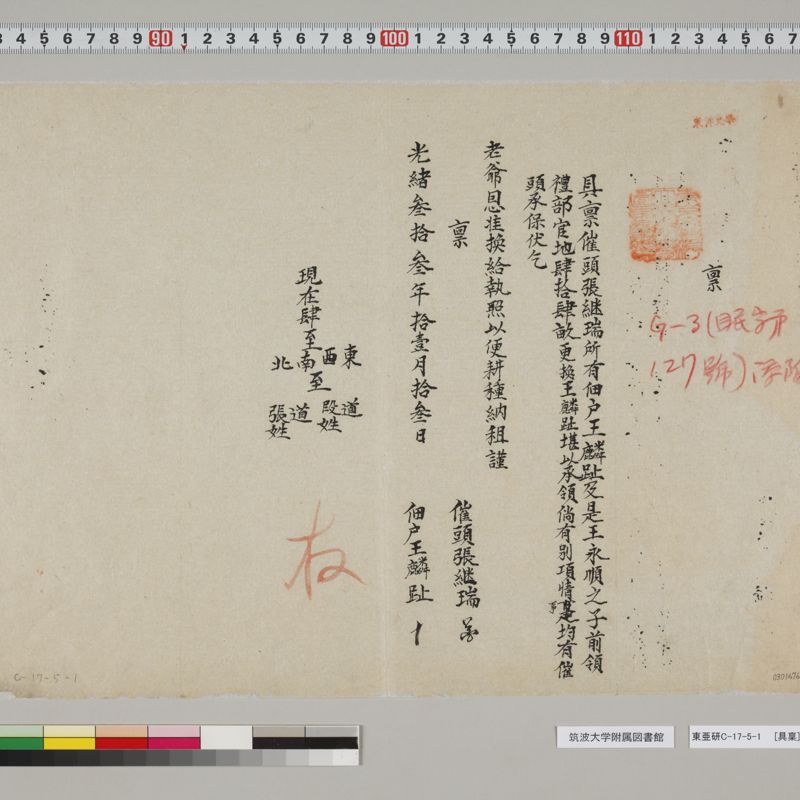 稟
具稟催頭張継瑞所有佃户王麟趾及是王永順之子前領
禮部官地肆拾肆畝更換王麟趾堪以承領倘有別項情事是均有催
頭承保伏乞
老爺恩准換給執照以便耕種納租謹
稟
催頭張継瑞
光緒叁拾叁年拾壹月拾叁日
佃户王麟趾 十
現在肆至
東至道
西至段姓
南至道
北至張姓
G-3(
127號)
C-17-5-1
筑波大学附属図書館
東亜研C-17-5-1 [具稟]
3 4 5 6 7 8 9 90 1 2 3 4 5 6 7 8 9 100 1 2 3 4 5 6 7 8 9 110 1 2 3 4 5 6 7